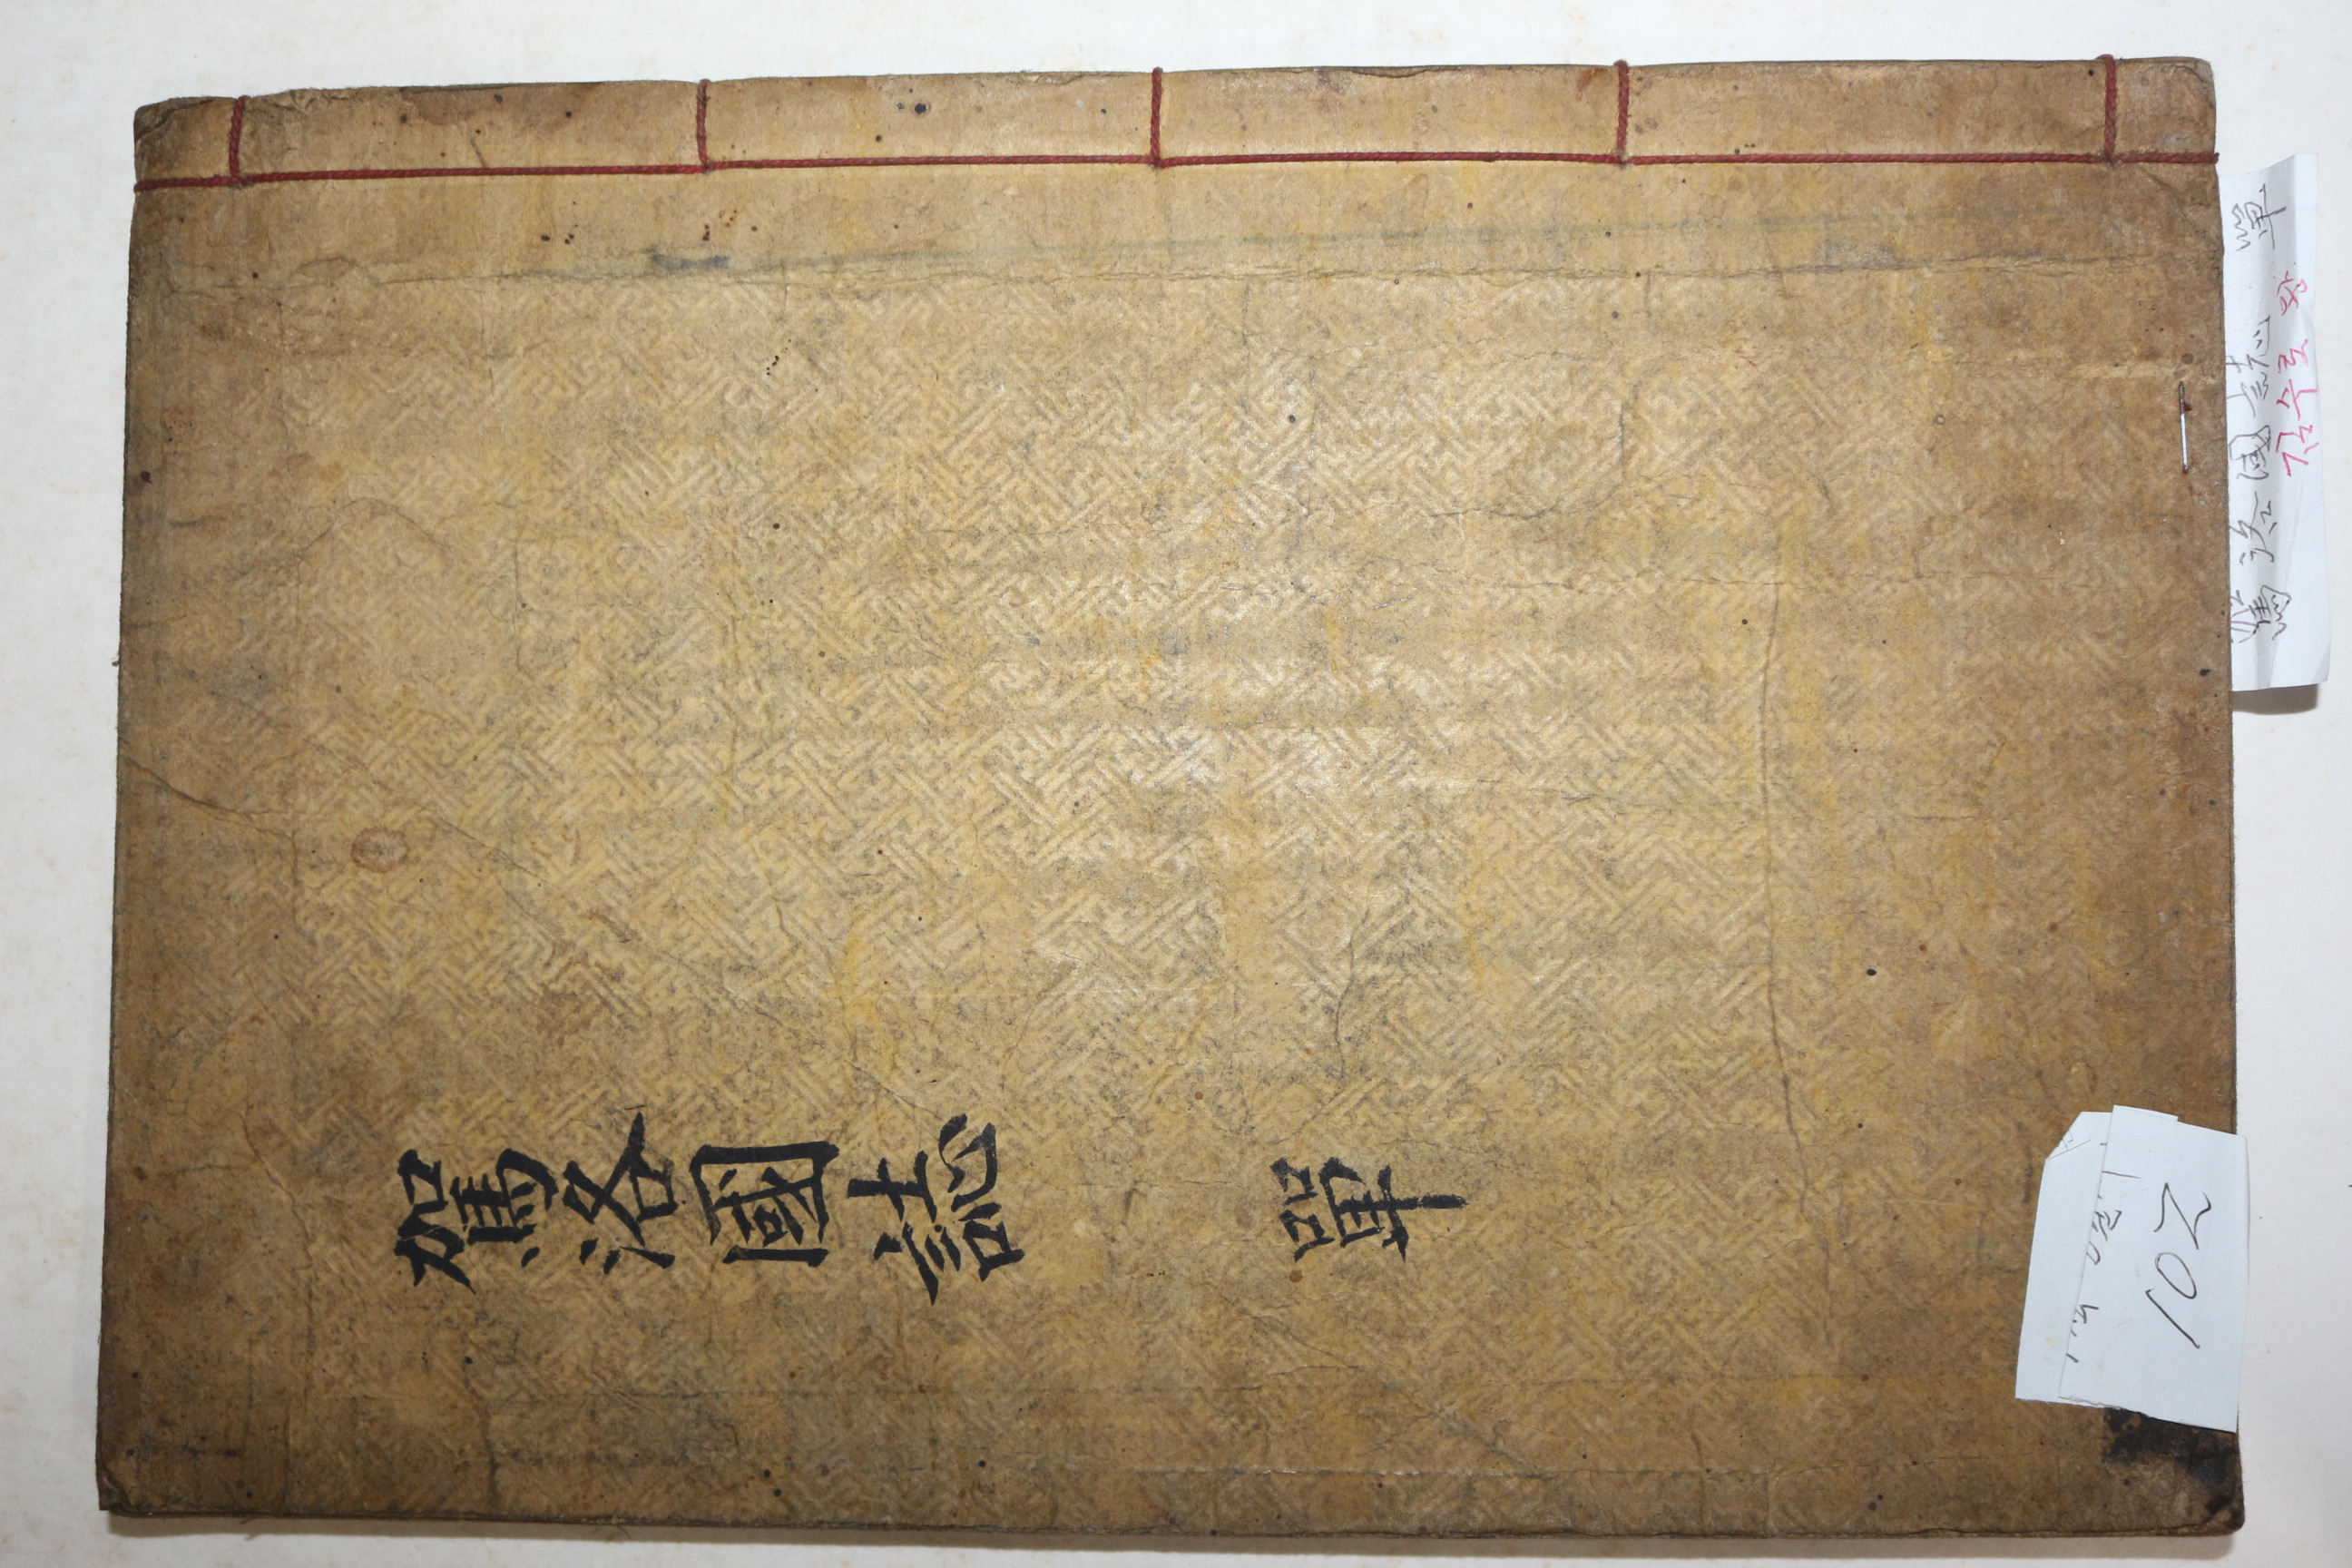 駕洛國誌 單
102
駕洛國誌 單
김수로왕